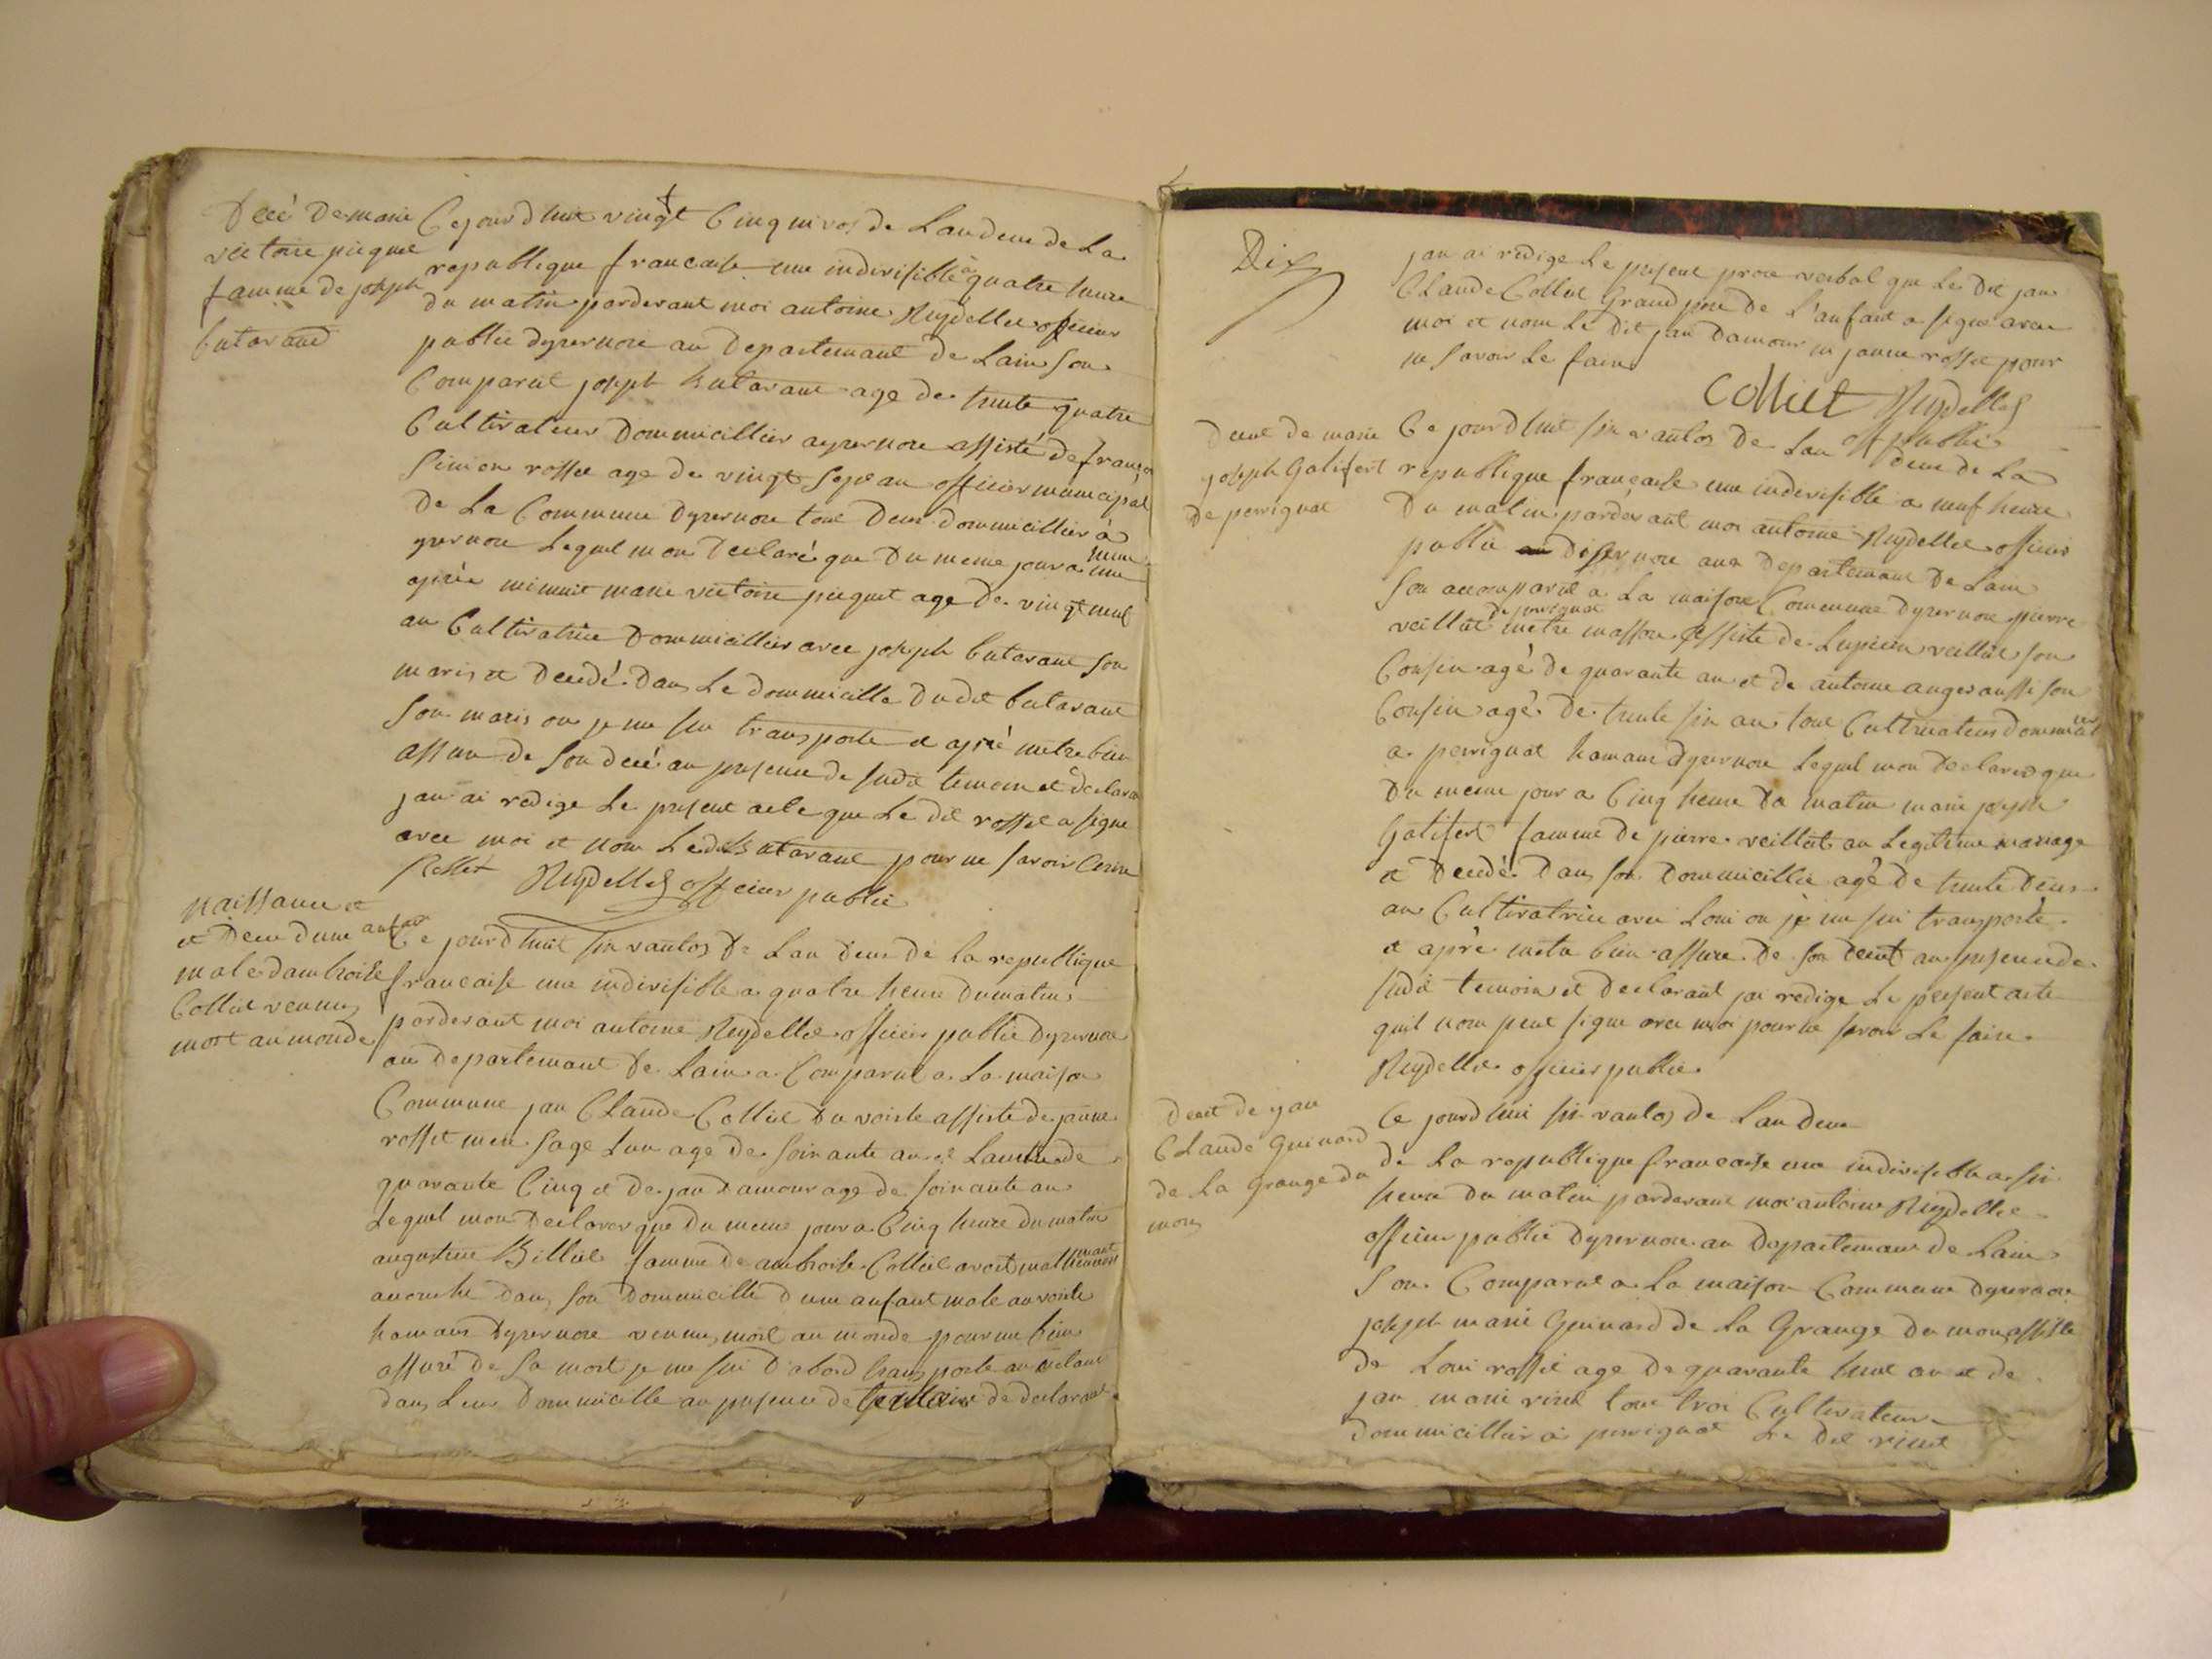 Décé de marie
victoire piequet
famme de joseph
butavand
Cejourdhuit vingt Cinq nivos de Lan deux de La
republique francaise une indivisible à quatre heure
du matin pardevant moi antoine Reydellet officier
public dyzernore au Departemant de Lain Son
Comparut joseph butavant age de trente quatre
Cultivateur Dommicillier ayzernore assisté de françoi
Simon rosset age de vingt Sept an officier municipal
de La Commune Dyzernore tout Deux dommicillier à
yzernore Lequel mon Declaré que Du meme jour a une heure
après minuit marie victoire piequet age De vingt neuf
an Cultivatrice Dommicillier avec joseph butavant son
maris et Decédé Dans Le dommicille Dudit butavant
Son maris ou je me sui transporté et après metre bien
assure de Son décé an presence de sudit temoin et declarant
jan ai redige Le present acte que Le dit rosset a signe
avec moi et non Ledit Butavant pour ne savoir Ecrire
Rosset Reydellet officier public
naissance et
et Décé dun anfan
male dambroise
Colliet vennus
mort au monde
Ce jourdhuit six vantos De Lan Deux de La republique
francaise une indivisible a quatre heure Du matin
pardevant moi antoine Reydellet officier public Dyzernore
au departemant De Lain a Comparut a La maison
Commune jan Claude Colliet Du voiste assiste de janne
rosset mere sage Lun age de soixante an et Lautre de
quarante Cinq et De jan Damour age de soixante an
Lequel mon Declarer que Du meme jour a Cinq heure du matin
augustine Billiet famme de ambroise Colliet avoit malheureusemant
acouché Dans son Dommicille Dun anfant male au voiste
hamaux Dyzernore vennus mort au monde pour me bien
assuré de Sa mort je me sui D'abord transporte au
dans Leur Dommicille au presence de temoins de declarant
Dix
jan ai redige Le present proce verbal que Le Dit jan
Claude Colliet Grand pere De l'anfant a signe avec
moi et nom Le Dit jan Damour ni janne rosset pour
ne Savoir Le faire
Colliet Reydellet
of public
Decet de marie
joseph Galifert
De perrignat
Ce jourdhuit six vantos De Lan deux de La
republique francaise une indivisible a neuf heure
Du matin pardevant moi antoine Reydellet officier
public Disernore aux Departemant De Lain
Son acomparut a La maison Commune Dyzernore pierre
veillut de perrignat metre masson assiste de Lupicin veillut son
Cousin agé de quarante an et de antoine anger aussi son
Cousin agé De trente six an tout Cultivateur Dommicilier
a perrignat hamaux dyzernore Lequel mon Declarer que
Du meme jour a Cinq heure Du matin marie joseph
Galifert famme de pierre veillut an Legitime mariage
et Decédé Dans son Dommicillie agé De trente Deux
an Cultivatrice avec Loui ou je me sui transporté
et aprè metre bien assure De son Decet an presence de
sudit temoin et Declarant jai redige Le present acte
quil nom peut signe avec moi pour ne savoir Le faire
Reydellet officier public
Decet de jan
Claude Guinard
de La Grange du
mon
Ce jourdhui six vantos de Lan Deux
de La republique francaise une indivisible a six
heure Du matin pardevant moi antoine Reydellet
officier public Dyzernore au Departemant de Lain
Son Comparut a La maison Commune Dyzernore
joseph marie Guinard de La Grange du mon assiste
de Loui rosset age De quarante huit an et de
jan marie vinet tout troi Cultivateur
Dommicillier a perrignat Le Dit vinet